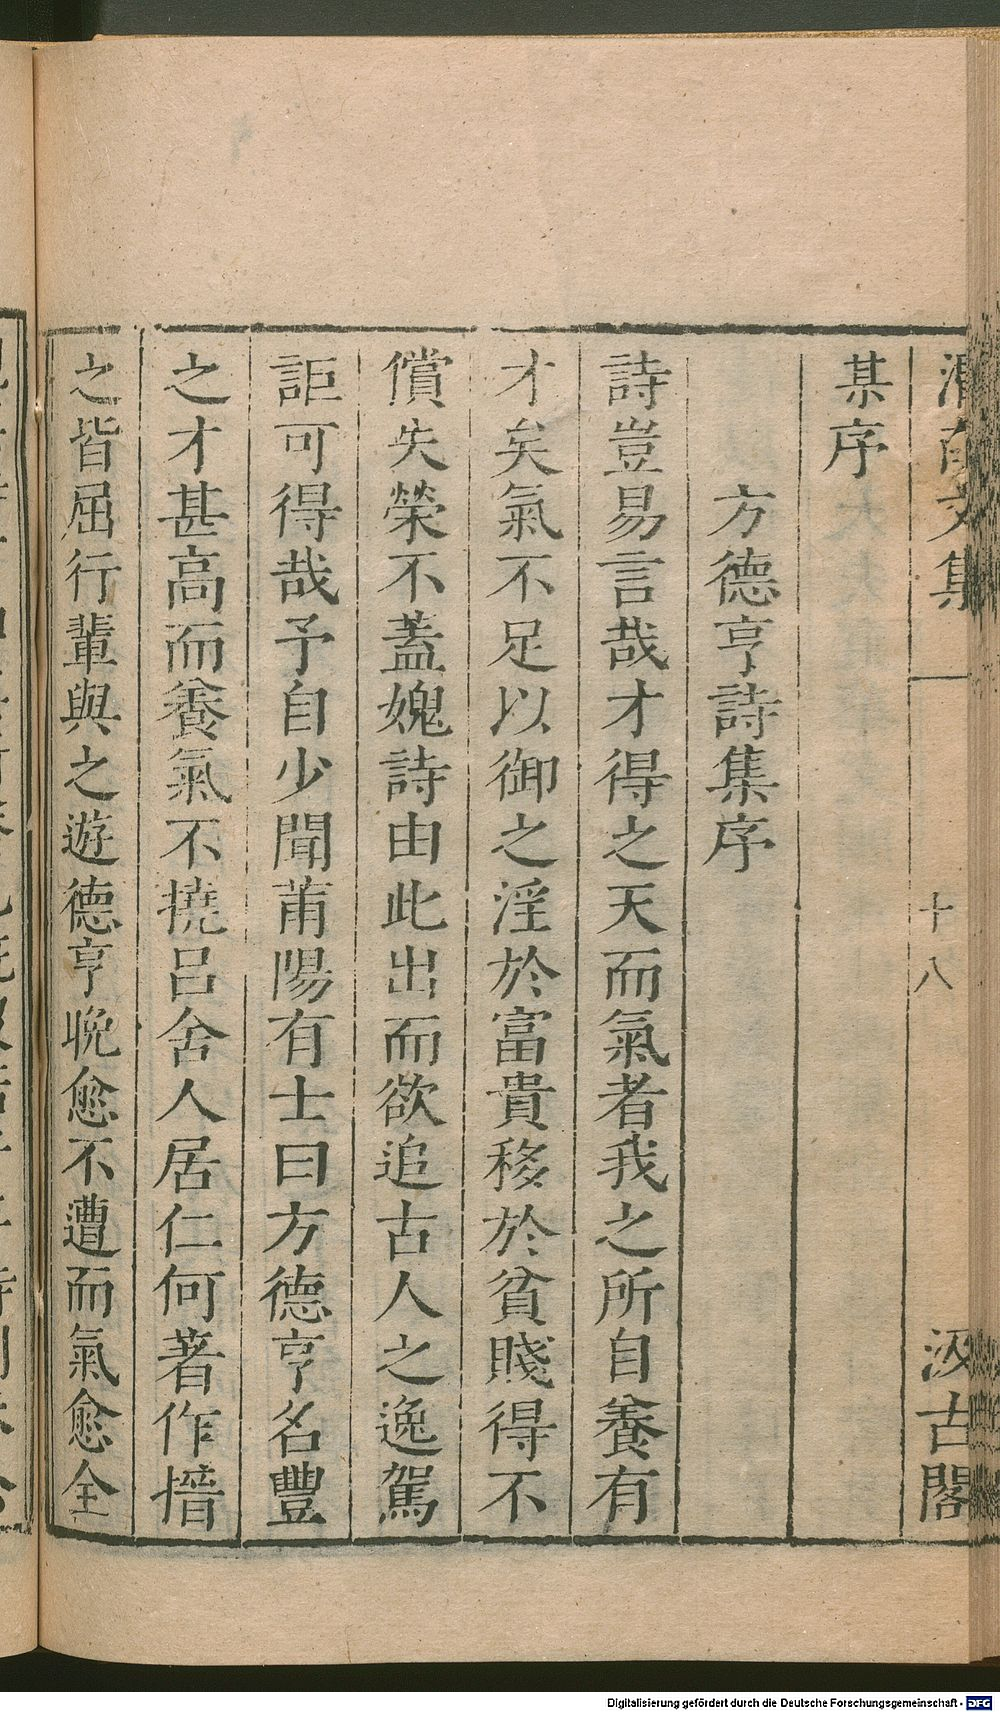 渭南文集
十八
汲古閣
某序
方德亨詩集序
詩豈易言哉才得之天而氣者我之所自養有
才矣氣不足以御之淫於富貴移於貧賤得不
償失榮不蓋媿詩由此出而欲追古人之逸駕
詎可得哉予自少聞莆陽有士曰方德亨名豐
之才甚高而養氣不撓呂舍人居仁何著作搢
之皆屈行輩與之遊德亨晚愈不遭而氣愈全
Digitalisierung gefördert durch die Deutsche Forschungsgemeinschaft - DFG